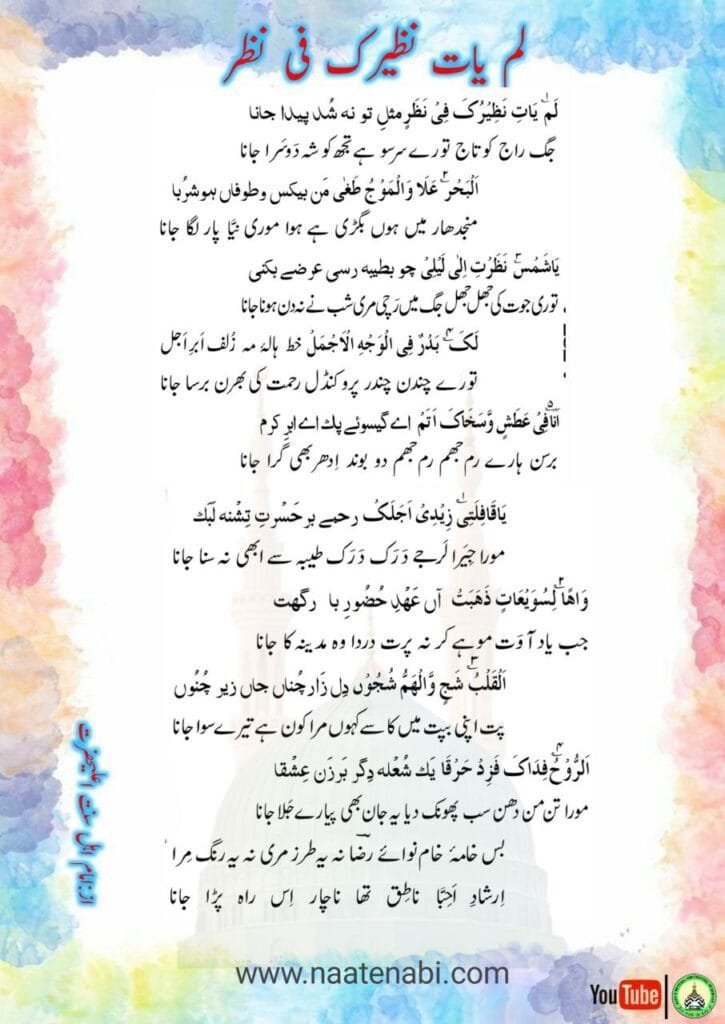 لم یات نظیرک فی نظر
لَمْ یَاتِ نَظِیْرُکَ فِیْ نَظَرٍ مثلِ تو نہ شُد پیدا جانا
جگ راج کو تاج تورے سر سو ہے تجھ کو شہ دَوسَرا جانا
اَلْبَحْرُ عَلَا وَالْمَوْجُ طَغٰی مَن بیکس و طوفاں ہوشرُبا
منجدھار میں ہوں بگڑی ہے ہوا موری نَیَّا پار لگا جانا
یَاشَمْسُ نَظَرْتِ اِلٰی لَیْلِیْ چو بطیبہ رسی عرضے بکنی
توری جوت کی جھل جھل جگ میں رَچی مری شب نے نہ دن ہونا جانا
لَکَ بَدْرٌ فِی الْوَجْهِ الْاَجْمَلْ خط ہالۂ مہ زُلف اَبرِ اَجل
تورے چندن چندر پرو کنڈل رحمت کی بھرن برسا جانا
اَنَا فِیْ عَطَشٍ وَّسَخَاکَ اَتَمْ اے گیسوئے پاک اے ابرِ کرم
برسن ہارے رم جھم رم جھم دو بوند اِدھر بھی گرا جانا
یَاقَافِلَتِیْ زِیْدِیْ اَجَلَکْ رحمے بر حَسْرتِ تِشْنہ لَبَک
مورا جِیَرا لَرجے دَرَک دَرَک طیبہ سے ابھی نہ سنا جانا
وَاهًا لِّسُوَیْعَاتٍ ذَهَبَتْ آں عَهْدِ حُضُورِ با رگهت
جب یاد آوَت موہے کر نہ پرت دردا وہ مدینہ کا جانا
اَلْقَلْبُ شَجٍ وَّالْهَمُّ شُجُوْں دِل زَار چُناں جاں زیرِ چُنُوں
پت اپنی بپت میں کا سے کہوں مرا کون ہے تیرے سوا جانا
اَلرُّوْحُ فِدَاکَ فَزِدْ حَرْقَا یک شُعْلہ دِگر بَرزَن عِشْقا
مورا تن من دھن سب پھونک دیا یہ جان بھی پیارے جَلا جانا
بس خامۂ خام نوائے رضا نہ یہ طرز مری نہ یہ رنگ مِرا
اِرشادِ اَحِبَّا ناطِق تھا ناچار اِس راہ پڑا جانا
از: امام اہل سنت اعلیٰحضرت
www.naatenabi.com
YouTube